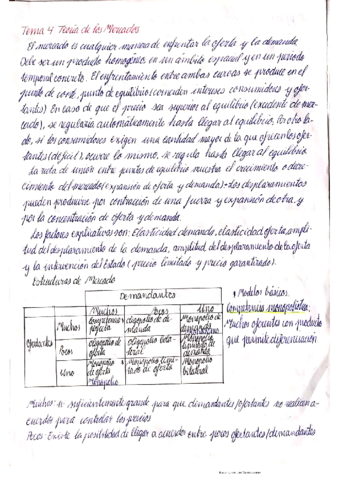 Tema 4 Teoría de los Mercados
El mercado es cualquier manera de enfrentar la oferta y la demanda.
Debe ser un producto homogéneo en un ámbito espacial y en un periodo
temporal concreto. El enfrentamiento entre ambas curvas se produce en el
punto de corte, punto de equilibrio (coinciden intereses consumidores y ofer-
tantes). En caso de que el precio sea superior al equilibrio (excedente de mer-
cado), se regularía automáticamente hasta llegar al equilibrio. Por otro la-
do, si los consumidores exigen una cantidad mayor de la que ofrecen los ofer-
tantes (déficit), ocurre lo mismo, se regula hasta llegar al equilibrio
La recta de unión entre puntos de equilibrio muestra el crecimiento o decre-
cimiento del mercado (expansión de oferta y demanda). Los desplazamientos
pueden producirse por contracción de una fuerza y expansión de otra, y
por la concentración de oferta y demanda.
Los factores explicativos son: Elasticidad demanda, elasticidad oferta, ampli-
tud del desplazamiento de la demanda, amplitud del desplazamiento de la oferta
y la intervención del Estado (precio limitado y precio garantizado).
Estructuras de Mercado
Demandantes
Muchos Pocos Uno
Ofertantes
Muchos Competencia perfecta Oligopolio de demanda Monopolio de demanda
Pocos Oligopolio de oferta Oligopolio bilateral Monopolio limitado de demanda
Uno Monopolio de oferta Monopolio Monopolio limitado de oferta Monopolio bilateral
• Modelos básicos:
Competencia monopolística:
Muchos oferentes con producto
que permite diferenciación
Muchos: nº suficientemente grande para que demandantes/ofertantes no realicen a-
cuerdos para controlar los precios
Pocos: Existe la posibilidad de llegar a acuerdos entre pocos ofertantes/demandantes